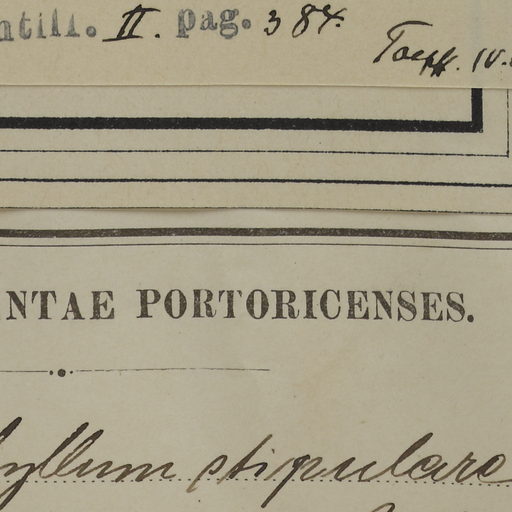 ntill. II. pag. 384.
Toepff. IV.
NTAE PORTORICENSES.
yllum stipulare